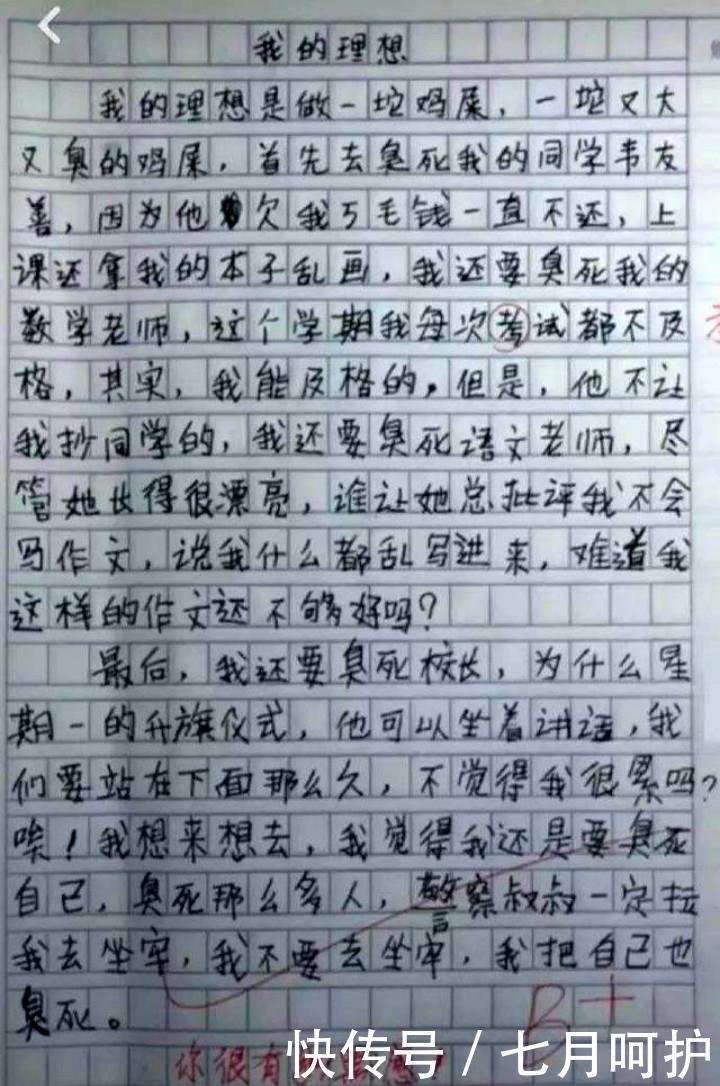 我的理想
我的理想是做一坨鸡屎，一坨又大
又臭的鸡屎，首先去臭死我的同学韦友
善，因为他欠我5毛钱一直不还，上
课还拿我的本子乱画，我还要臭死我的
数学老师，这个学期我每次考试都不及
格，其实，我能及格的，但是，他不让
我抄同学的，我还要臭死语文老师，尽
管她长得很漂亮，谁让她总批评我不会
写作文，说我什么都乱写进来，难道我
这样的作文还不够好吗？
最后，我还要臭死校长，为什么星
期一的升旗仪式，他可以坐着讲话，我
们要站在下面那么久，不觉得我很累吗？
唉！我想来想去，我觉得我还是要臭死
自己，臭死那么多人，警察叔叔一定抓
我去坐牢，我不要去坐牢，我把自己也
臭死。
B+
你很有
快传号/七月呵护